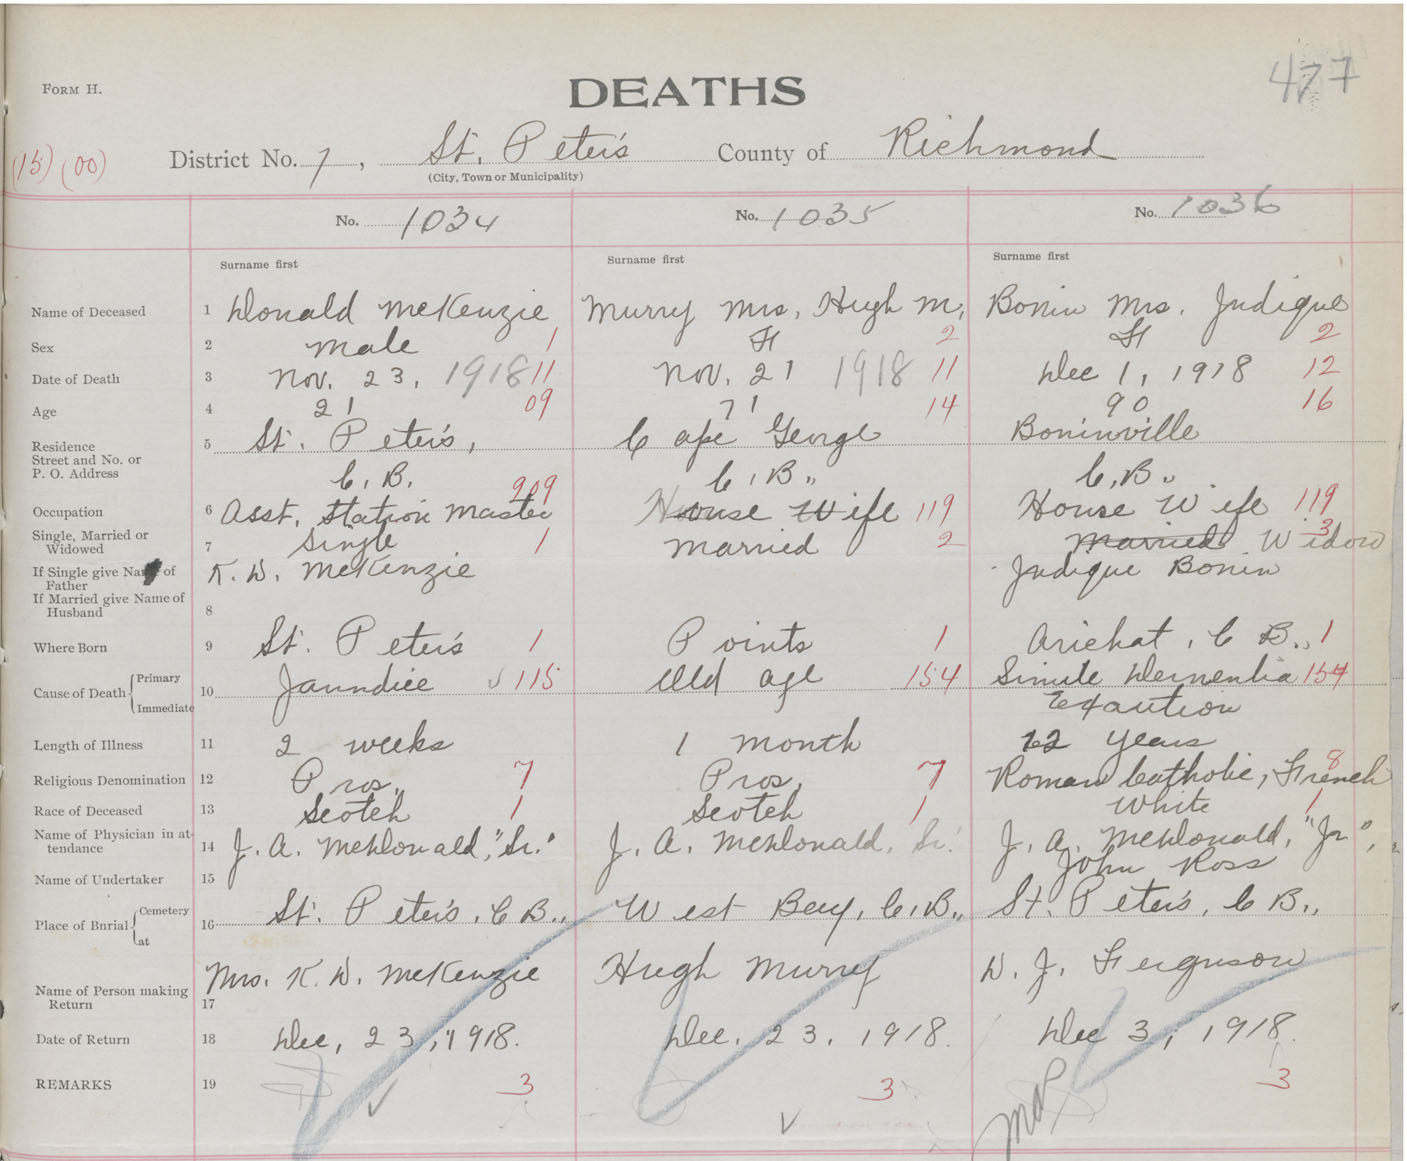 477
FORM H.
DEATHS
(15) (00)
District No. 7, St. Peter's County of Richmond
(City, Town or Municipality)
No. 1034 No. 1035 No. 1036
Surname first Surname first Surname first
Name of Deceased 1 Donald McKenzie Murry Mrs, Hugh M, Bonin Mrs. Judique
Sex 2 Male 1 F 2 F 2
Date of Death 3 Nov. 23, 1918 11 Nov. 21 1918 11 Dec 1, 1918 12
Age 4 21 09 71 14 90 16
Residence 5 St. Peter's, Cape George Boninville
Street and No. or
P. O. Address C. B. C, B.. C, B.
Occupation 6 Asst. Station Master 909 House Wife 119 House Wife 119
Single, Married or
Widowed 7 Single 1 Married 2 Married Widow 3
If Single give Name of
Father K. D. McKenzie Judique Bonin
If Married give Name of
Husband 8
Where Born 9 St. Peter's 1 Points 1 Arichat, C B., 1
Cause of Death Primary 10 Jaundice 115 Old age 154 Sinile Dementia 154
Immediate Exaution
Length of Illness 11 2 weeks 1 month 12 Years
Religious Denomination 12 Pros. 7 Pros. 7 Roman Catholic, French 8
Race of Deceased 13 Scotch 1 Scotch 1 White 1
Name of Physician in at-
tendance 14 J. A. McDonald, "Sr." J. A. McDonald, Sr. J. A. McDonald, "Jr",
Name of Undertaker 15 John Ross
Place of Burial Cemetery 16 St. Peter's, C B., West Bay, C, B., St. Peter's, C B.,
at
Name of Person making
Return 17 Mrs. K. D. McKenzie Hugh Murry D. J. Ferguson
Date of Return 18 Dec, 23, 1918. Dec. 23, 1918. Dec 3, 1918.
REMARKS 19 3 3 3